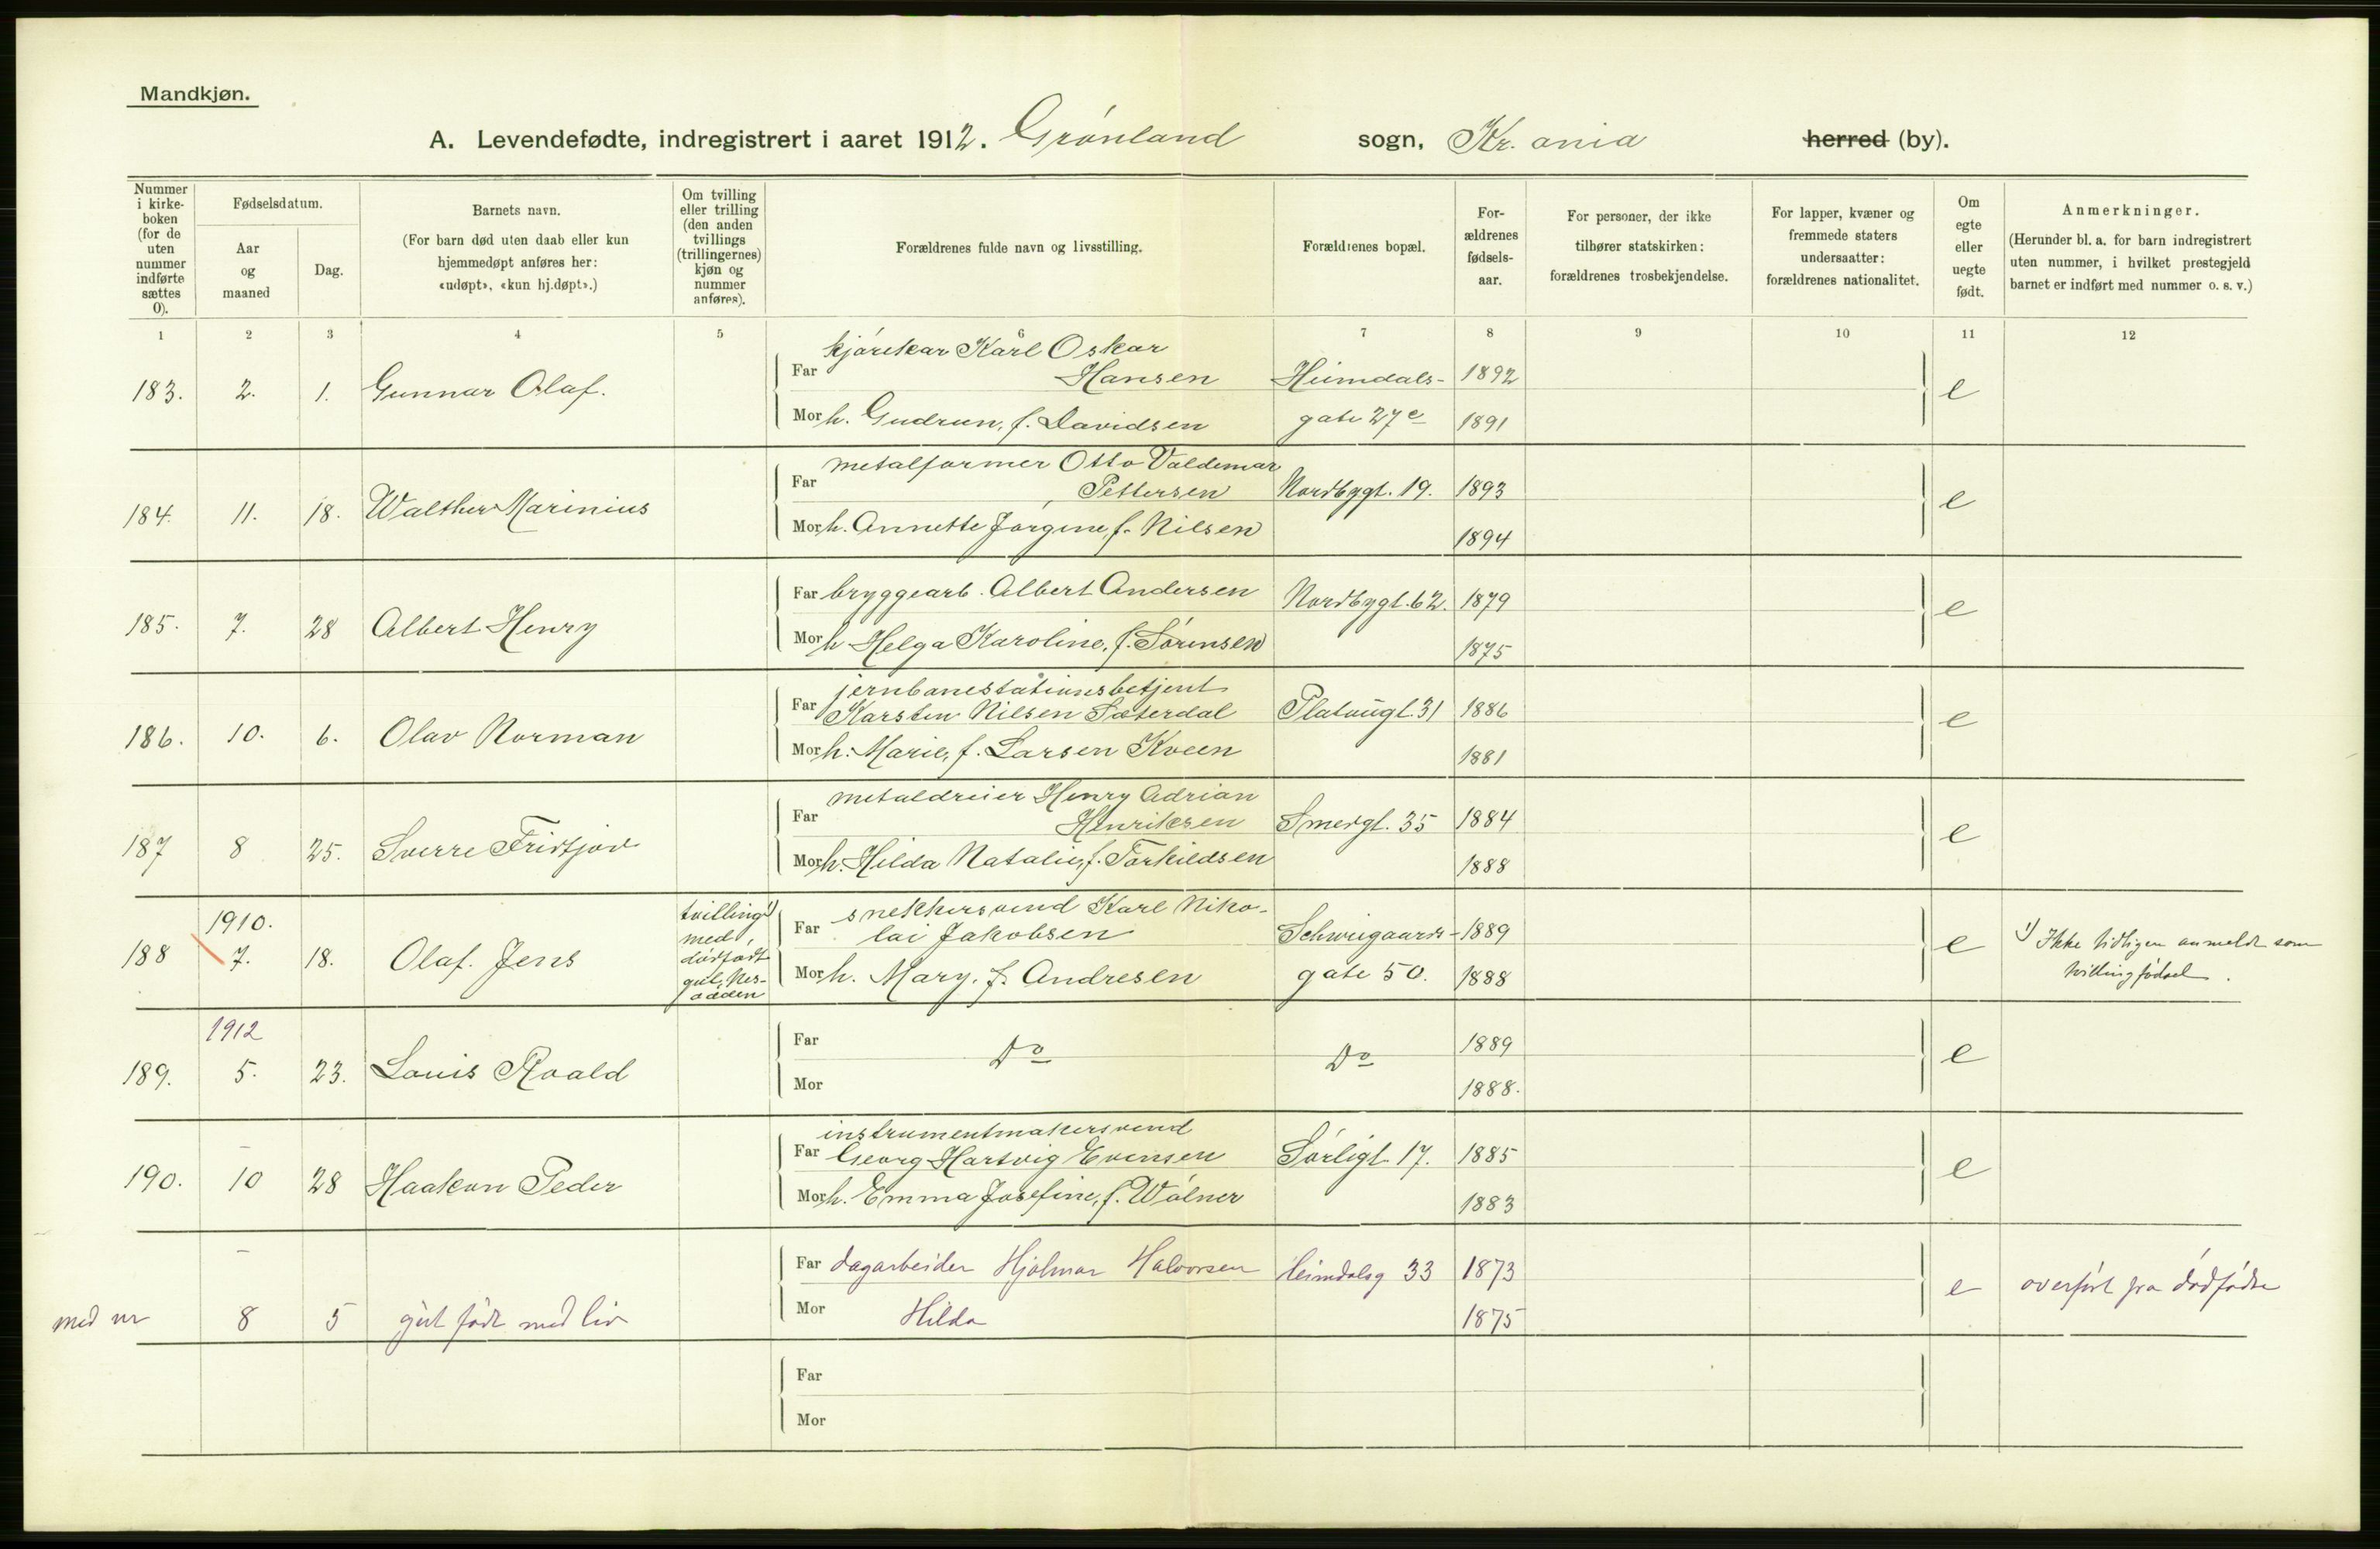 Mandkjøn.
A. Levendefødte, indregistrert i aaret 1912. Grønland sogn, Kr.ania herred (by).
Nummer i kirke-boken (for de uten nummer indførte sættes 0).
Fødselsdatum.
Aar og maaned
Dag.
Barnets navn.
(For barn død uten daab eller kun hjemmedøpt anføres her: «udøpt», «kun hj.døpt».)
Om tvilling eller trilling (den anden tvillings (trillingernes) kjøn og nummer anføres).
Forældrenes fulde navn og livsstilling.
Forældrenes bopæl.
For-ældrenes fødsels-aar.
For personer, der ikke tilhører statskirken: forældrenes trosbekjendelse.
For lapper, kvæner og fremmede staters undersaatter: forældrenes nationalitet.
Om egte eller uegte født.
Anmerkninger.
(Herunder bl. a. for barn indregistrert uten nummer, i hvilket prestegjeld barnet er indført med nummer o. s. v.)
1 2 3 4 5 6 7 8 9 10 11 12
kjørekar Karl Oskar
Far Hansen Heimdals- 1892
183. 2. 1. Gunnar Olaf. e
Mor h. Gudrun, f. Davidsen gate 27c 1891
metalformer Otto Valdemar
Far Pettersen Nordbygt. 19. 1893
184. 11. 18. Walther Marinius e
Mor h. Annette Jørgine, f. Nilsen 1894
Far bryggearb. Albert Andersen Nordbygt. 62. 1879
185. 7. 28 Albert Henry e
Mor h Helga Karoline, f. Sørensen 1875
jernbanestationsbetjent
Far Karsten Nilsen Sæterdal Platougt. 31 1886
186. 10. 6. Olav Norman e
Mor h. Marie, f. Larsen Kveen 1881
metaldreier Henry Adrian
Far Henriksen Smedgt. 35 1884
187 8 25. Sverre Fridtjov e
Mor h. Hilda Natalie, f. Torkildsen 1888
1910. tvilling 1) snekkersvend Karl Niko-
Far lai Jakobsen Schweigaards- 1889
188 7. 18. Olaf. Jens med dødfødt gut, Nes-odden e 1) Ikke tidligere anmeldt som tvillingfødsel.
Mor h. Mary, f. Andresen gate 50. 1888
1912
Far Do Do 1889
189. 5. 23. Louis Roald e
Mor 1888.
instrumentmakersvend
Far Georg Hartvig Evensen Sørligt. 17. 1885
190. - 10 28 Haakon Peder e
Mor h. Emma Josefine, f. Wølner 1883
Far dagarbeider Hjalmar Halvorsen Heimdalsg 33 1873
med nr - 8 5 gut født med liv e overført fra dødfødte
Mor Hilda 1875
Far
Mor